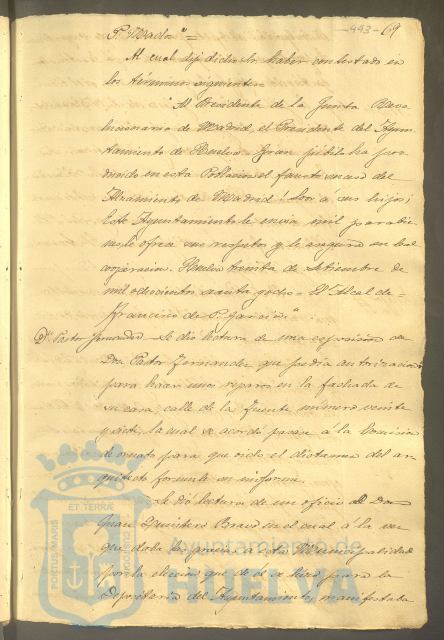 -443- 69
P. Mado =
Al cual dijo dicho Sr. haber contestado en
los términos siguientes
Al Presidente de la Junta Revo
lucionaria de Madrid, el Presidente del Ayun
tamiento de Huelva = Gran júbilo ha pro
ducido en esta Población el fausto suceso del
Alzamiento de Madrid! Loor á sus hijos;
Este Ayuntamiento le envia mil parabie
nes, le ofrece sus respetos y le asegura su leal
cooperacion. Huelva treinta de Setiembre de
mil ochocientos sesenta y ocho = El Alcalde =
Francisco de P. Garcia =
Dn. Pastor Fernandez = Se dió lectura de una esposicion de
Don Pastor Fernandez que pedia autorizacion
para hacer unos reparos en la fachada de
su casa, calle de la Fuente número veinte
y siete, la cual se acordó pasase á la Comision
de ornato para que oido el dictamen del ar
quitecto formule su informe.
Se dió lectura de un oficio de Don
Juan Quintero Bravo en el cual á la vez
que daba las gracias á esta Municipalidad
por la eleccion que de él se hizo para la
Depositaria del Ayuntamiento, manifestaba
PORTUS MARIS
ET TERRAE
CUSTODIA
Ayuntamiento de
HUELVA